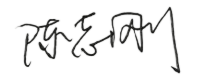 陈志刚